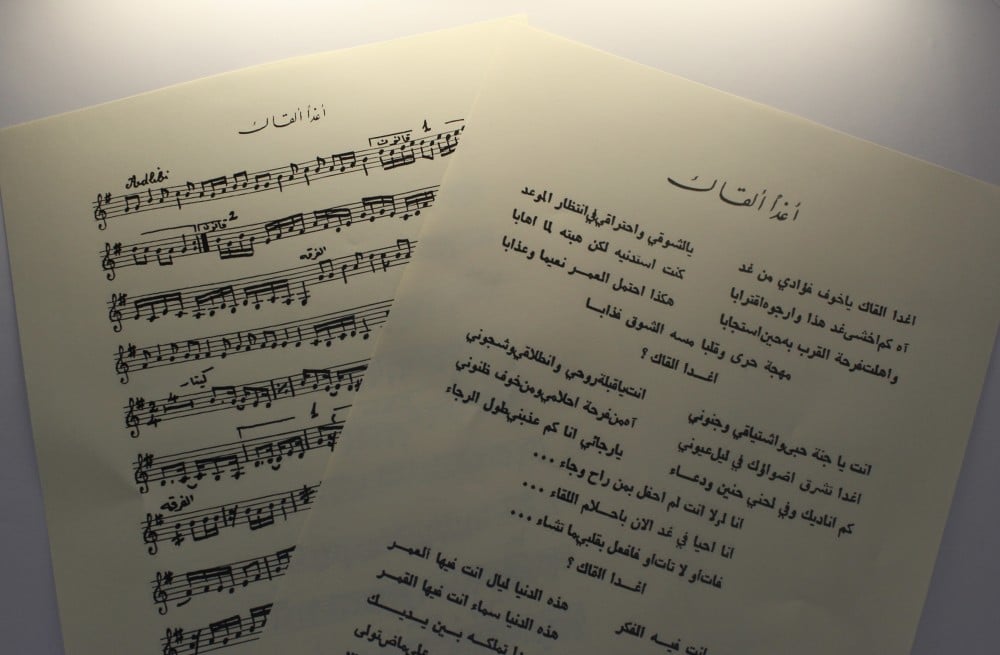 أغداً ألقاك
Adlibi
قانون 1
قانون 2
الفرقه
كيتار
2
4
1
الفرقه
أغداً ألقاك
اغدا القاك ياخوف فؤادي من غد يالشوقي واحتراقي في انتظار الموعد
آه كم اخشى غد هذا وارجوه اقترابا كنت استدنيه لكن هبته لما اهابا
واهلت فرحة القرب به حين استجابا هكذا احتمل العمر نعيما وعذابا
مهجة حرى وقلبا مسه الشوق فذابا
اغدا القاك ؟
انت يا جنة حبى واشتياقي وجنوني انت ياقبلة روحي وانطلاقي وشجوني
اغدا تشرق اضواؤك في ليل عيوني آه من فرحة احلامي ومن خوف ظنوني
كم اناديك وفي لحني حنين ودعاء يارجائي انا كم عذبني طول الرجاء
انا لولا انت لم احفل بمن راح وجاء ...
انا احيا في غد الان باحلام اللقاء ...
فات او لا تات او فافعل بقلبي ما تشاء ...
اغدا القاك ؟
هذه الدنيا ليال انت فيها العمر
هذه الدنيا سماء انت فيها القمر
تملكه بين يديك
انت فيه الفكر
ماض تولى